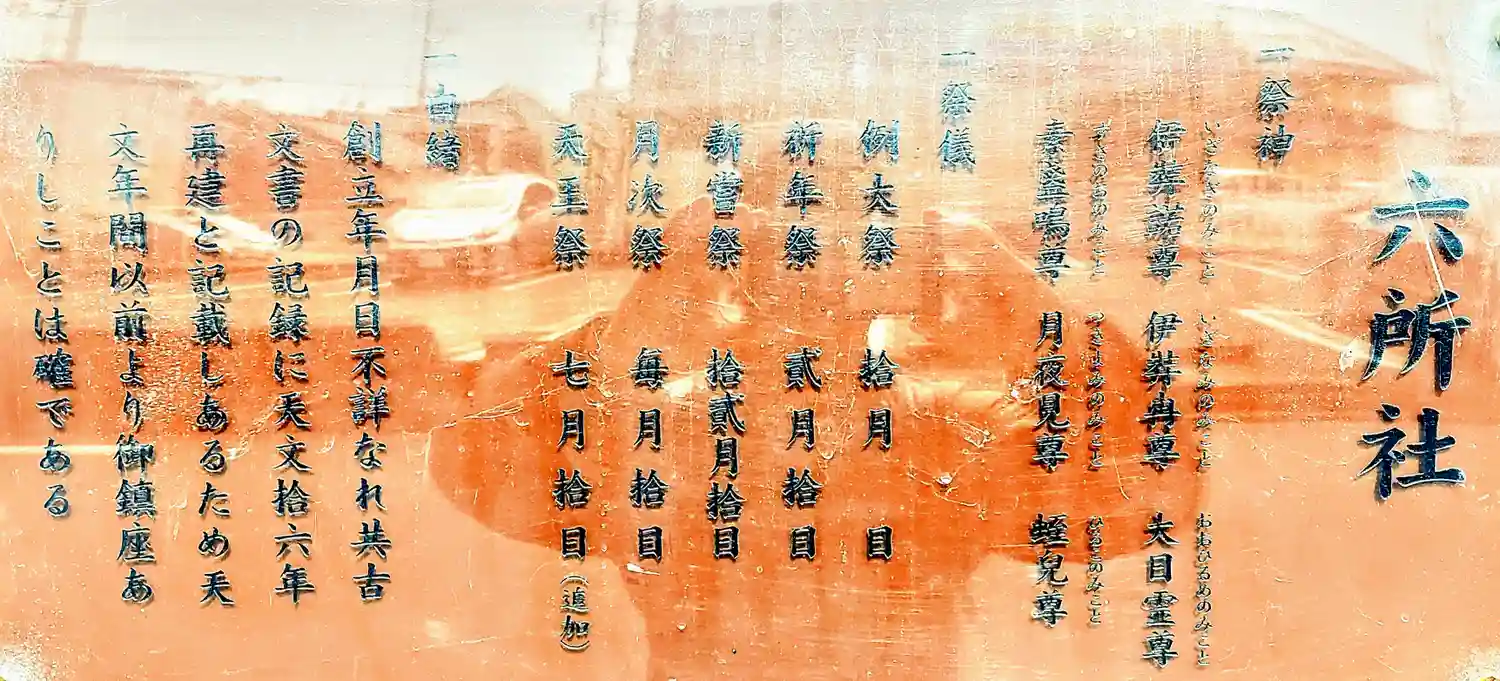 六所社
一祭神
いざなぎのみこと いざなみのみこと おおひるめのみこと
伊弉諾尊 伊弉冉尊 大日霊尊
すさのおのみこと つきよみのみこと ひるこのみこと
素盞鳴尊 月夜見尊 蛭兒尊
一祭儀
例大祭 拾月 日
祈年祭 貳月拾日
新嘗祭 拾貳月拾日
月次祭 毎月拾日
天王祭 七月拾日(追加)
一由緒
創立年月日不詳なれ共古
文書の記録に天文拾六年
再建と記載しあるため天
文年間以前より御鎮座あ
りしことは確である